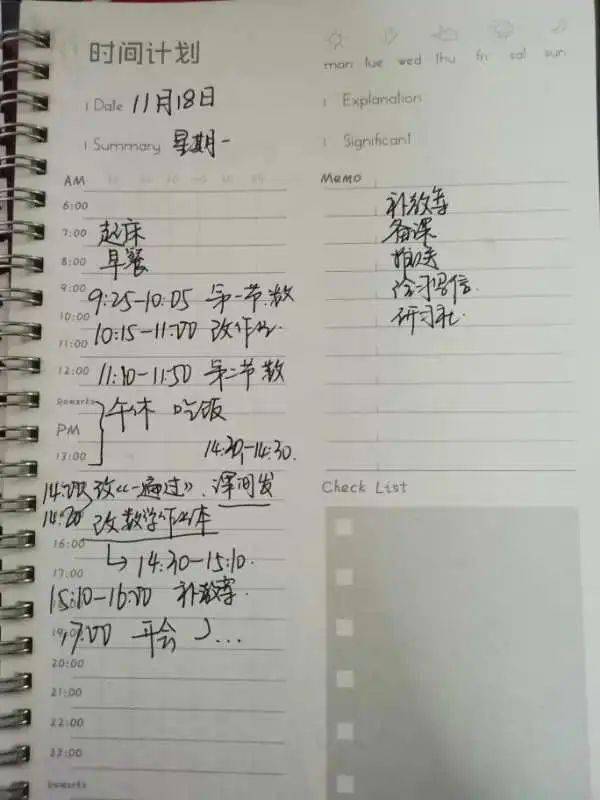 时间计划
mon tue wed thu fri sat sun
Date 11月18日
Explanation
Summary 星期一
Significant
AM
6:00
7:00 起床
8:00 早餐
9:00
9:25-10:05 第一节数
10:00
10:15-11:00 改作业
11:00
12:00 11:10-11:50 第二节数
Remarks
午休 吃饭
PM
13:00
14:30-14:30
14:00 改《一遍过》,课间发
14:20 改数学作业本
16:00
→14:30-15:10
17:00
15:10-16:00 补教案
19:00 开会
20:00
21:00
22:00
23:00
Remarks
Memo
补教案
备课
研习社
Check List